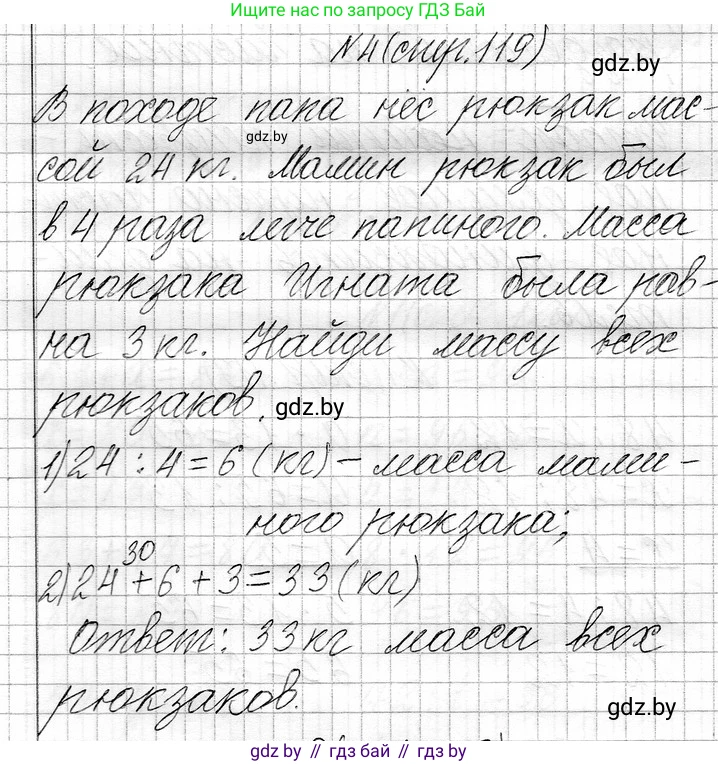 Ищите нас по запросу ГДЗ Бай
№4(стр.119)
gdz.by
В походе папа нёс рюкзак мас-
gdz.by
сой 24 кг. Мамин рюкзак был
в 4 раза легче папиного. Масса
рюкзака Игната была рав-
на 3 кг. Найди массу всех
рюкзаков.
gdz.by
1) 24 : 4 = 6 (кг) – масса мами-
ного рюкзака;
30
2) 24 + 6 + 3 = 33 (кг)
Ответ: 33 кг масса всех
рюкзаков.
gdz.by
gdz.by // гдз бай // gdz.by